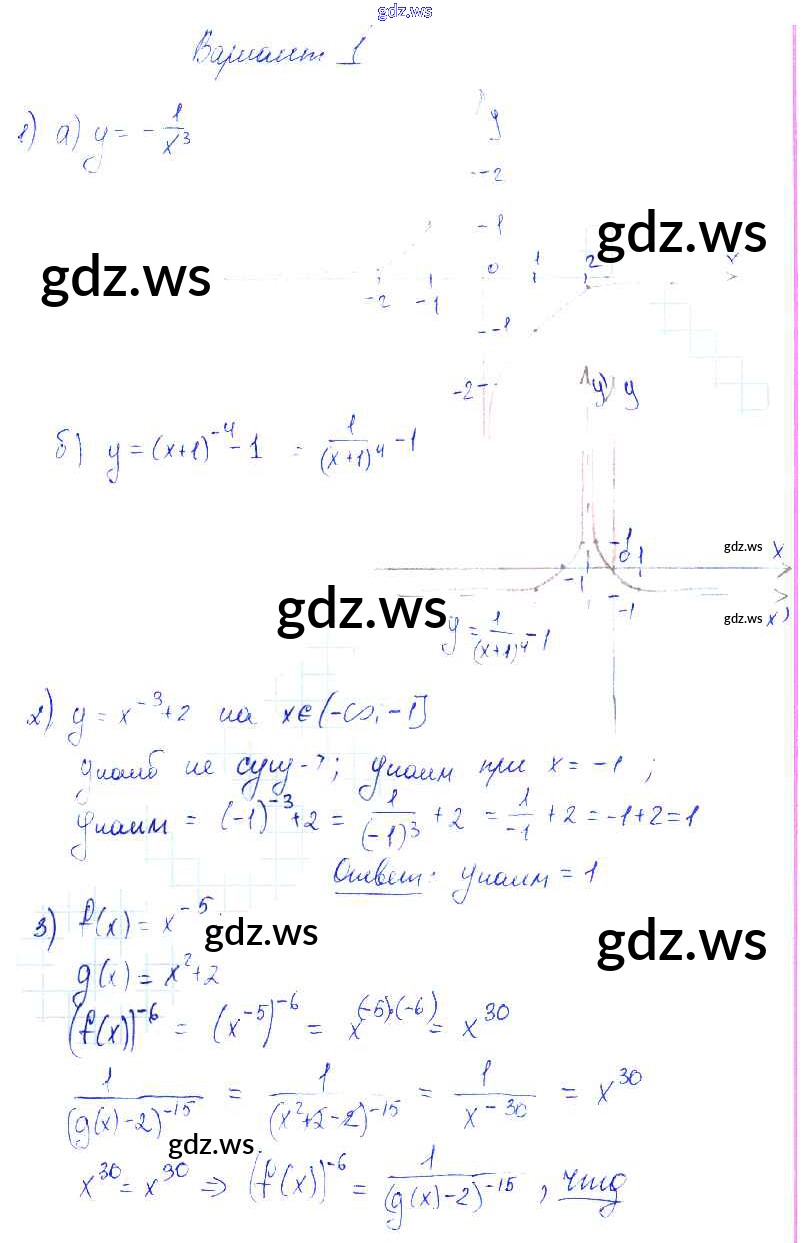 gdz.ws
Вариант 1
1) а) y = -1/x³
y
2
1
gdz.ws
gdz.ws
0 1 2 x
-2 -1
-1
-2
y y
б) y = (x+1)⁻⁴ - 1 = 1/(x+1)⁴ - 1
1
gdz.ws x
-1 0 1
-1
gdz.ws
gdz.ws x'
y = 1/(x+1)⁴ - 1
2) y = x⁻³ + 2 на x∈(-∞, -1]
yнаиб не сущ-т; yнаим при x = -1;
yнаим = (-1)⁻³ + 2 = 1/(-1)³ + 2 = 1/-1 + 2 = -1+2 = 1
Ответ: yнаим = 1
3) f(x) = x⁻⁵
gdz.ws
gdz.ws
g(x) = x² + 2
(f(x))⁻⁶ = (x⁻⁵)⁻⁶ = x⁽⁻⁵⁾·⁽⁻⁶⁾ = x³⁰
1/(g(x)-2)⁻¹⁵ = 1/(x²+2-2)⁻¹⁵ = 1/x⁻³⁰ = x³⁰
gdz.ws
x³⁰ = x³⁰ ⇒ (f(x))⁻⁶ = 1/(g(x)-2)⁻¹⁵, чтд